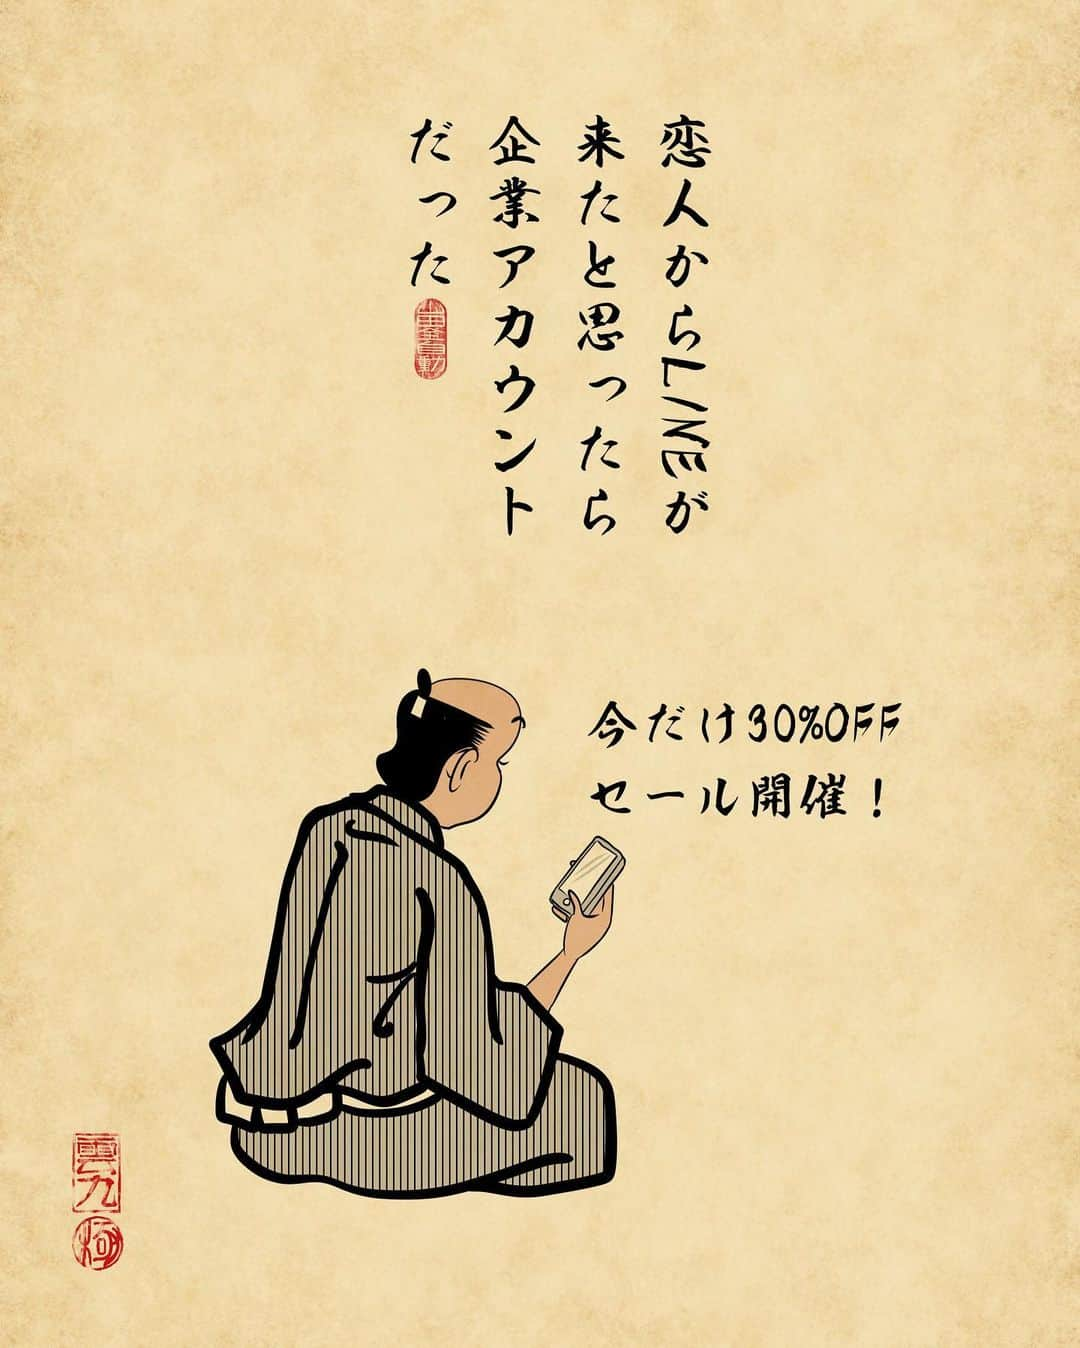 恋人からLINEが
来たと思ったら
企業アカウント
だった
今だけ30%OFF
セール開催！